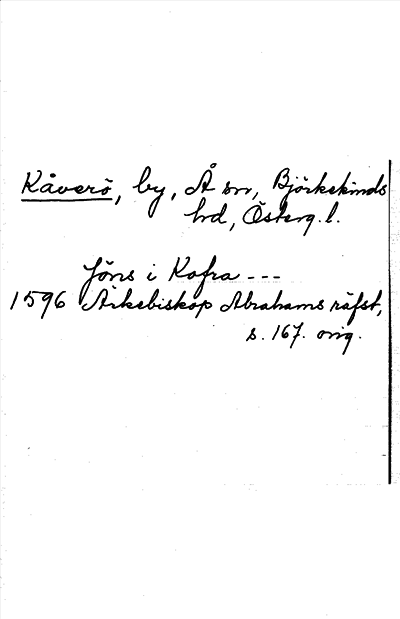 Kåverö, by, Å sn, Björkekinds
hd, Österg. l.
Jöns i Kofra ---
1596 Ärkebiskop Abrahams räfst,
s. 167. orig.